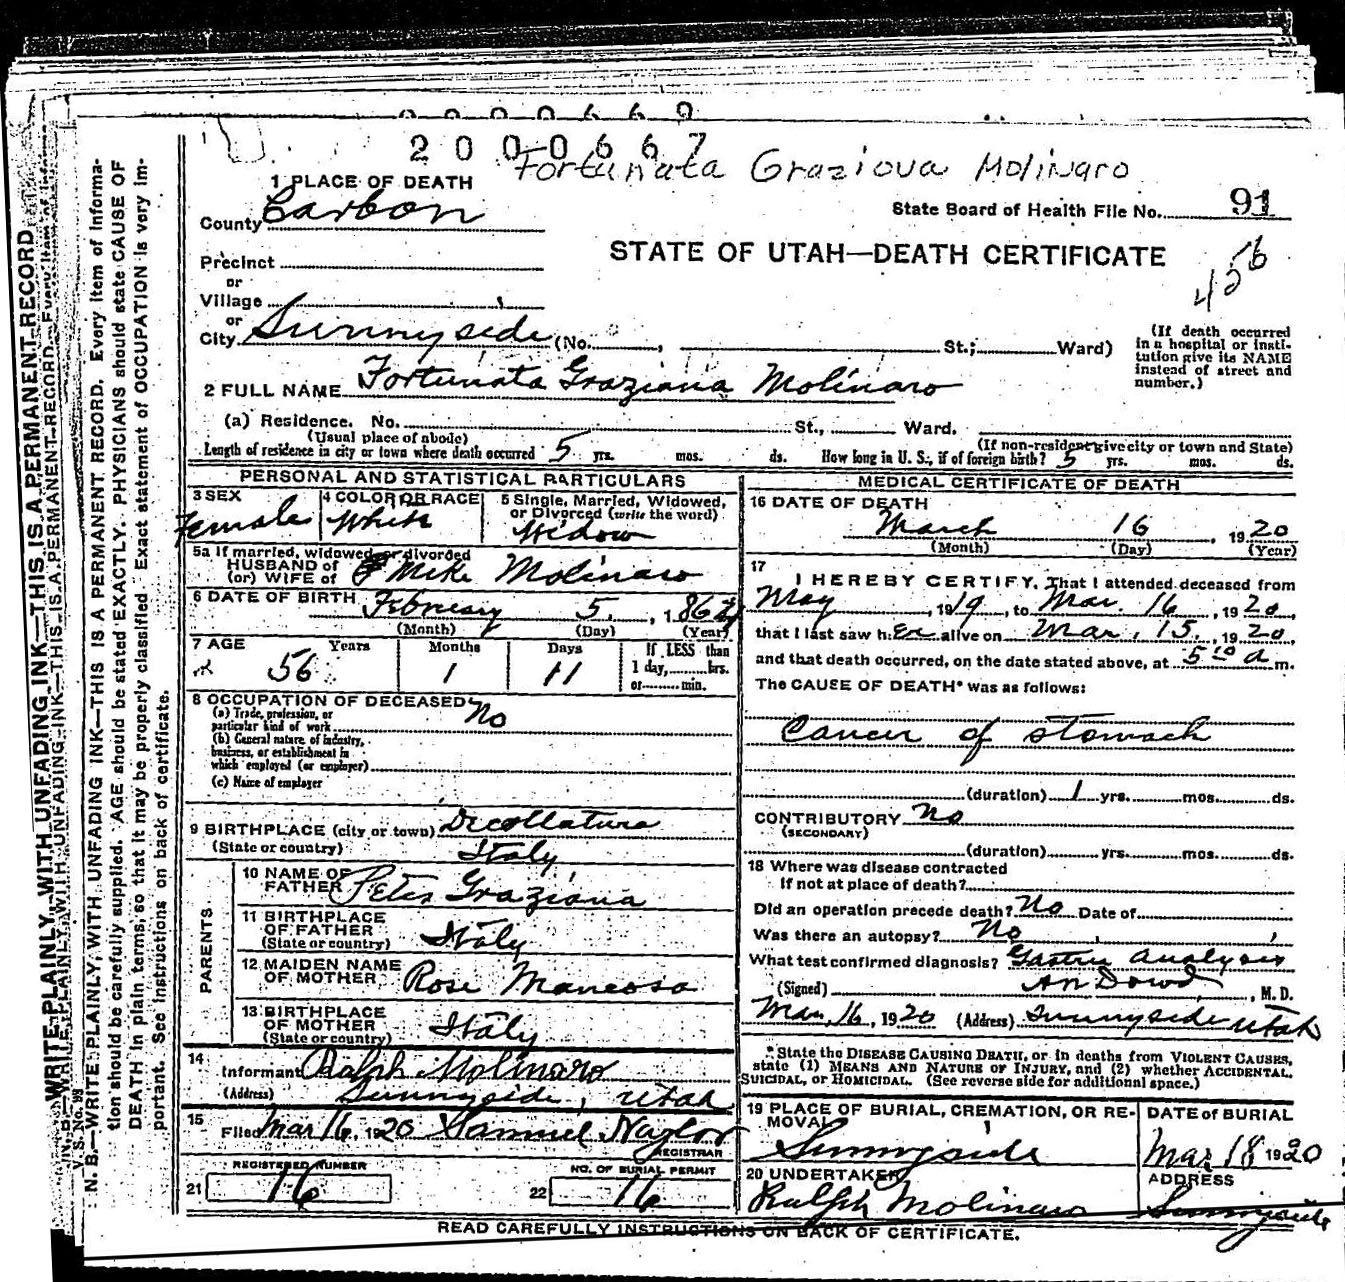 2000669
2000667
Fortunata Graziova Molinaro
1 PLACE OF DEATH
County Carbon
State Board of Health File No. 91
STATE OF UTAH—DEATH CERTIFICATE
456
Precinct
or
Village
or
City Sunnyside (No. , St.; Ward)
(If death occurred in a hospital or institution give its NAME instead of street and number.)
2 FULL NAME Fortunata Graziana Molinaro
(a) Residence. No. St., Ward.
(Usual place of abode) (If non-resident give city or town and State)
Length of residence in city or town where death occurred 5 yrs. mos. ds. How long in U. S., if of foreign birth? 5 yrs. mos. ds.
PERSONAL AND STATISTICAL PARTICULARS
3 SEX Female
4 COLOR OR RACE White
5 Single, Married, Widowed, or Divorced (write the word) Widow
5a If married, widowed or divorced
HUSBAND of
(or) WIFE of Mike Molinaro
6 DATE OF BIRTH February 5, 1864
(Month) (Day) (Year)
7 AGE Years Months Days If LESS than
56 1 11 1 day, hrs.
or min.
8 OCCUPATION OF DECEASED No
(a) Trade, profession, or
particular kind of work
(b) General nature of industry,
business, or establishment in
which employed (or employer)
(c) Name of employer
9 BIRTHPLACE (city or town) Decollatura
(State or country) Italy
PARENTS
10 NAME OF FATHER Peter Graziana
11 BIRTHPLACE OF FATHER (State or country) Italy
12 MAIDEN NAME OF MOTHER Rose Mancosa
13 BIRTHPLACE OF MOTHER (State or country) Italy
14 Informant Ralph Molinaro
(Address) Sunnyside, Utah
15 Filed Mar 16, 1920 Samuel Naylor
REGISTRAR
REGISTERED NUMBER NO. OF BURIAL PERMIT
21 16 22 16
MEDICAL CERTIFICATE OF DEATH
16 DATE OF DEATH
March 16, 1920
(Month) (Day) (Year)
17 I HEREBY CERTIFY, That I attended deceased from
May, 1919, to Mar. 16, 1920,
that I last saw her alive on Mar. 15, 1920,
and that death occurred, on the date stated above, at 5 10 a m.
The CAUSE OF DEATH* was as follows:
Cancer of stomach
(duration) 1 yrs. mos. ds.
CONTRIBUTORY No
(SECONDARY)
(duration) yrs. mos. ds.
18 Where was disease contracted
if not at place of death?
Did an operation precede death? No Date of
Was there an autopsy? No
What test confirmed diagnosis? Gastric analysis
(Signed) An Dowd, M. D.
Mar, 16, 1920 (Address) Sunnyside Utah
*State the DISEASE CAUSING DEATH, or in deaths from VIOLENT CAUSES,
state (1) MEANS AND NATURE OF INJURY, and (2) whether ACCIDENTAL,
SUICIDAL, or HOMICIDAL. (See reverse side for additional space.)
19 PLACE OF BURIAL, CREMATION, OR REMOVAL Sunnyside
DATE of BURIAL Mar 18 1920
20 UNDERTAKER Ralph Molinaro
ADDRESS Sunnyside
READ CAREFULLY INSTRUCTIONS ON BACK OF CERTIFICATE.
WRITE PLAINLY, WITH UNFADING INK—THIS IS A PERMANENT RECORD
V. S. No. 99
N. B.—WRITE PLAINLY, WITH UNFADING INK—THIS IS A PERMANENT RECORD. Every item of information should be carefully supplied. AGE should be stated EXACTLY. PHYSICIANS should state CAUSE OF DEATH in plain terms, so that it may be properly classified. Exact statement of OCCUPATION is very important. See instructions on back of certificate.